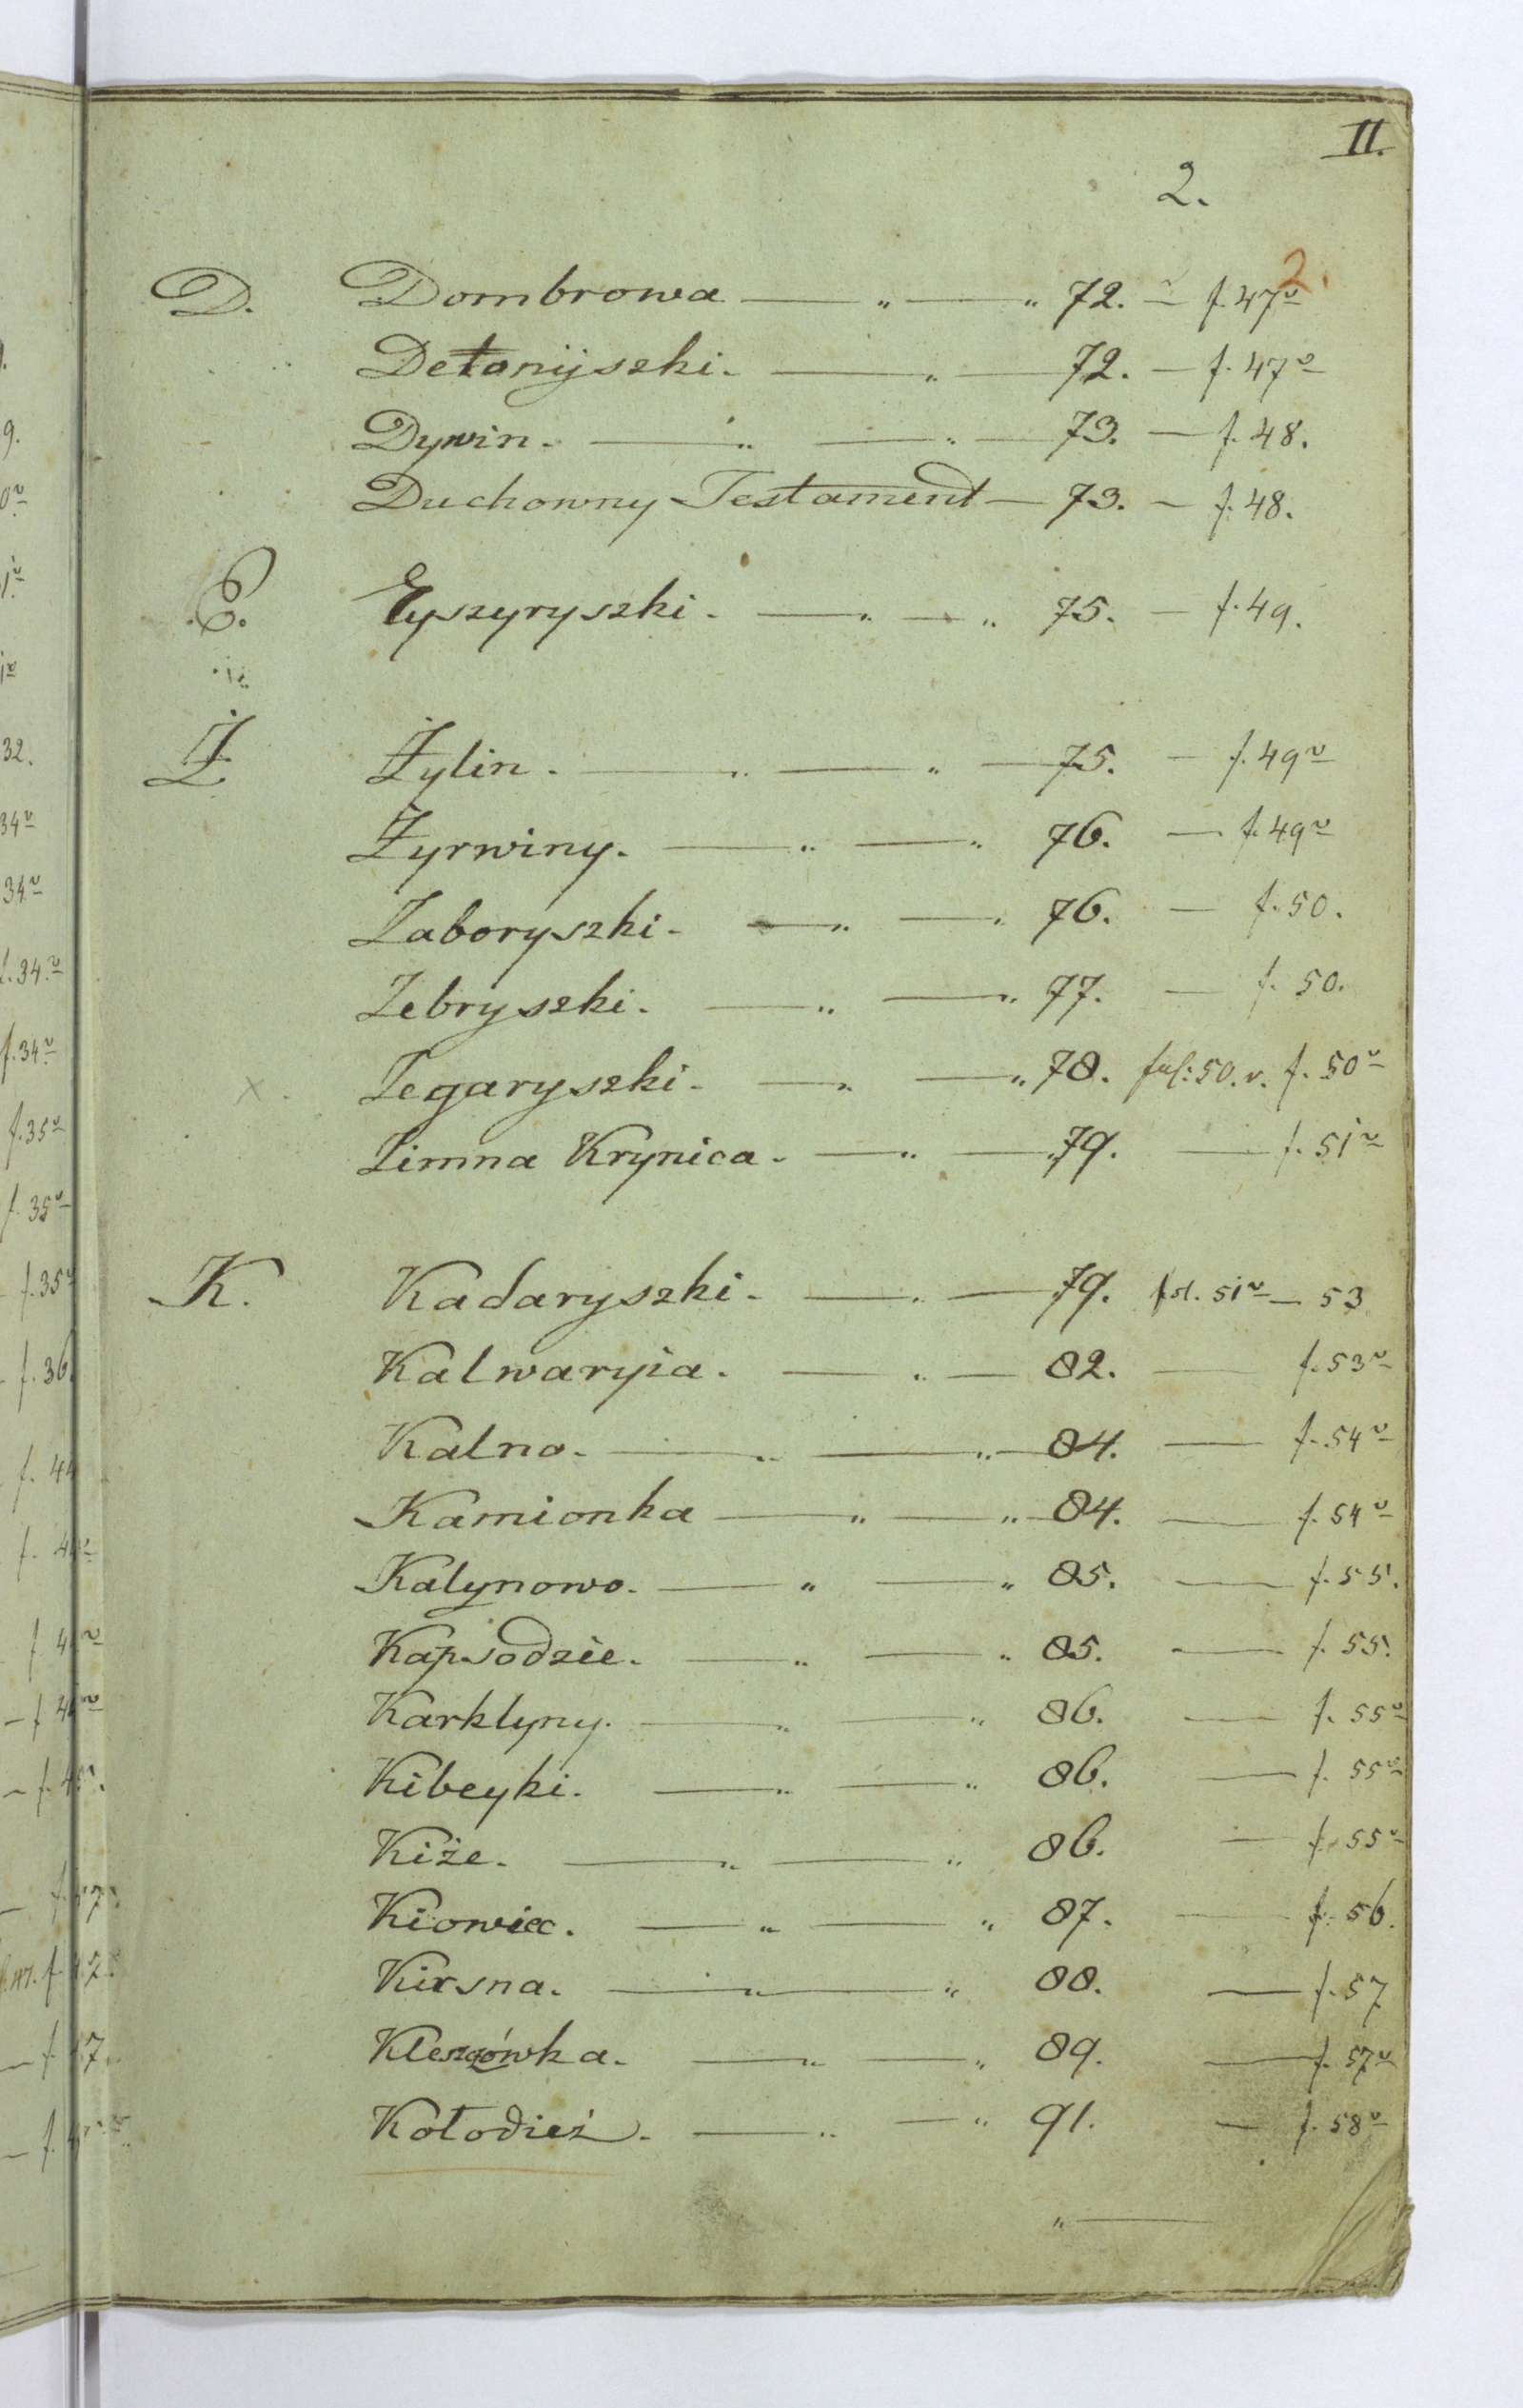 II.
2.
2.
D. Dombrowa — „ — „ 72. — f. 47v
Detonijszki. — „ — 72. — f. 47v
Dywin. — „ — „ — 73. — f. 48.
Duchowny Testament — 73. — f. 48.
E. Eyszyryszki. — „ — „ 75. — f. 49.
Ż Żylin. — „ — „ — 75. — f. 49v
Żyrwiny. — „ — „ 76. — f. 49v
Zaboryszki. — „ — „ 76. — f. 50.
Zebryszki. — „ — „ 77. — f. 50.
x. Zegaryszki. — „ — „ 78. fol: 50. v. f. 50v
Zimna Krynica. — „ — „ 79. — f. 51v
K. Kadaryszki. — „ — 79. fol. 51v — 53
Kalwaryia. — „ — 82. — f. 53v
Kalno. — „ — „ — 84. — f. 54v
Kamionka — „ — „ — 84. — f. 54v
Kalynowo. — „ — „ 85. — f. 55.
Kapsodzie. — „ — „ 85. — f. 55.
Karklyny. — „ — „ 86. — f. 55v
Kibeyki. — „ — „ 86. — f. 55v
Kiże. — „ — „ 86. — f. 55v
Kiowiec. — „ — „ 87. — f. 56.
Kirsna. — „ — „ 88. — f. 57
Kleszczówka. — „ — „ 89. — f. 57v
Kołodież. — „ — „ 91. — f. 58v
„ —
9.
32.
34v
34v
f. 34v
f. 34v
f. 35v
f. 35v
f. 35v
f. 36